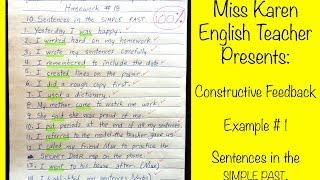 Homework # 1B
10 Sentences in the SIMPLE PAST.
100%
1. Yesterday I was happy.
2. I worked hard on my homework.
3. I wrote my sentences carefully.
4. I remembered to include the date.
5. I created lines on the paper.
6. I did a rough copy first.
7. I used a dictionary.
8. My mother came to watch me work.
9. She said she was proud of me.
10. I put periods at the end of all my sentences.
11. I referred to the model the teacher gave us.
12. I called my friend Max to practice the
Secret Door rap on the phone.
13. I went to his house after. (Max)
14. I highlighted my sentences (verbs)
Miss Karen
English Teacher
Presents:
Constructive Feedback
Example # 1
Sentences in the
SIMPLE PAST.